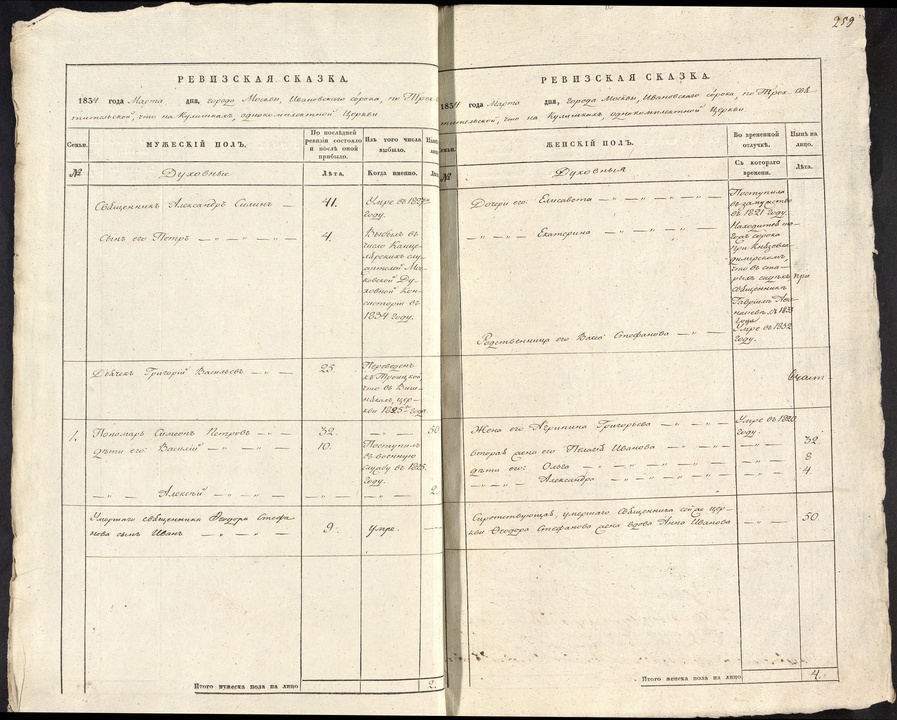 259
РЕВИЗСКАЯ СКАЗКА.
1834 года Марта дня, города Москвы, Ивановскаго сорока, по Трех
тительской, что на Кулишкахъ, однокомплектной Церкви
Семьи.
МУЖЕСКІЙ ПОЛЪ.
По послѣдней
ревизіи состояло
и послѣ оной
прибыло.
Изъ того числа
выбыло.
№
Духовные
Лѣта.
Когда именно.
Священникъ Александръ Силинъ —
41.
Умре въ 1827м
году.
Сынъ его Петръ — „ — „ — „ —
4.
Выбылъ въ
число Канце-
лярскихъ слу-
жителей Мо-
сковской Ду-
ховной Кон-
систоріи въ
1834 году.
Дьячекъ Григорій Васильевъ — „ —
25.
Переведенъ
къ Троицкой,
что въ Виш-
някахъ, цер-
кви 1825го года
1.
Пономарь Симеонъ Петровъ — „ —
32
— „ —
50
дѣти его: Василій — „ — „ —
10.
Поступилъ
въ военную
службу въ 1825.
году.
— „ — Алексѣй — „ — „ —
„
— „ —
2.
Умершаго священника Ѳеодора Стефа
нова сынъ Иванъ — „ — „ —
9.
Умре.
Итого мужеска пола на лицо
2.
РЕВИЗСКАЯ СКАЗКА.
1834 года Марта дня, города Москвы, Ивановскаго сорока, по Трех свя-
тительской, что на Кулишкахъ, однокомплектной Церкви
№
ЖЕНСКІЙ ПОЛЪ.
Во временной
отлучкѣ.
Нынѣ на
лицо.
Духовныя
Съ котораго
времени.
Лѣта.
Дочери его: Елисавета — „ — „ — „ —
Поступила
въ замужство
въ 1821 году.
— „ — „ — Екатерина — „ — „ —
Находится
сорока
при
что въ ста-
рыхъ садахъ, при
священникѣ
Гавріилѣ
года
Родственница его Васса Стефанова — „ —
Умре въ 1832
году.
Жена его Агрипина Григорьева — „ — „ —
Умре въ 1820
году.
вторая жена его Пелагія Иванова
— „ —
32.
дѣти его: Ольга — „ — „ —
— „ —
8
— „ — „ — Александра — „ — „ —
— „ —
4
Сиротствующая, умершаго Священника сей же цер-
кви Ѳеодора Стефанова жена вдова Анна Иванова
— „ —
50
Итого женска пола на лицо
4.